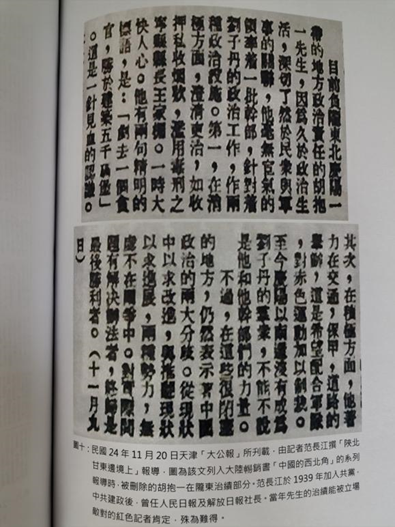 目前負隴東北慶陽一
帶的地方政治責任的胡抱
一先生，因為久於政治生
活，深切了然於民衆與軍
事的關聯，他毫無官氣的
領導着一批幹部，針對着
劉子丹的政治工作，作兩
種政治設施。第一，在消
極方面，澄清吏治，如收
押私收烟狀，濫用毒刑之
寧縣縣長王家棚。一時大
快人心。他有兩句精明的
標語，是：「剷去一個貪
官，勝於建築五千碉堡」
。這是一針見血的認識。
其次，在積極方面，他著
力在交通，保甲，道路的
整齡，這是希望配合軍隊
，對赤色運動加以制裁。
至今慶陽以南還沒有成為
劉子丹的羣衆，不能不說
是他和他幹部們的力量。
不過，在這些很閉塞
的地方，仍然表示著中國
政治的兩大分歧。從現狀
中以求改進，與推翻現狀
以求進展，兩種勢力，無
處不在鬥爭中。對實際問
題有解決辦法者，終歸是
最後勝利者。（十一月九
日）
圖十：民國24年11月20日天津「大公報」所刊載，由記者范長江撰「陝北
甘東邊境上」報導，圖為該文列入大陸暢銷書「中國的西北角」的系列
報導時，被刪除的胡抱一在隴東治績部分。范長江於1939年加入共黨，
中共建政後，曾任人民日報及解放日報社長。當年先生的治績能被立場
敵對的紅色記者肯定，殊為難得。